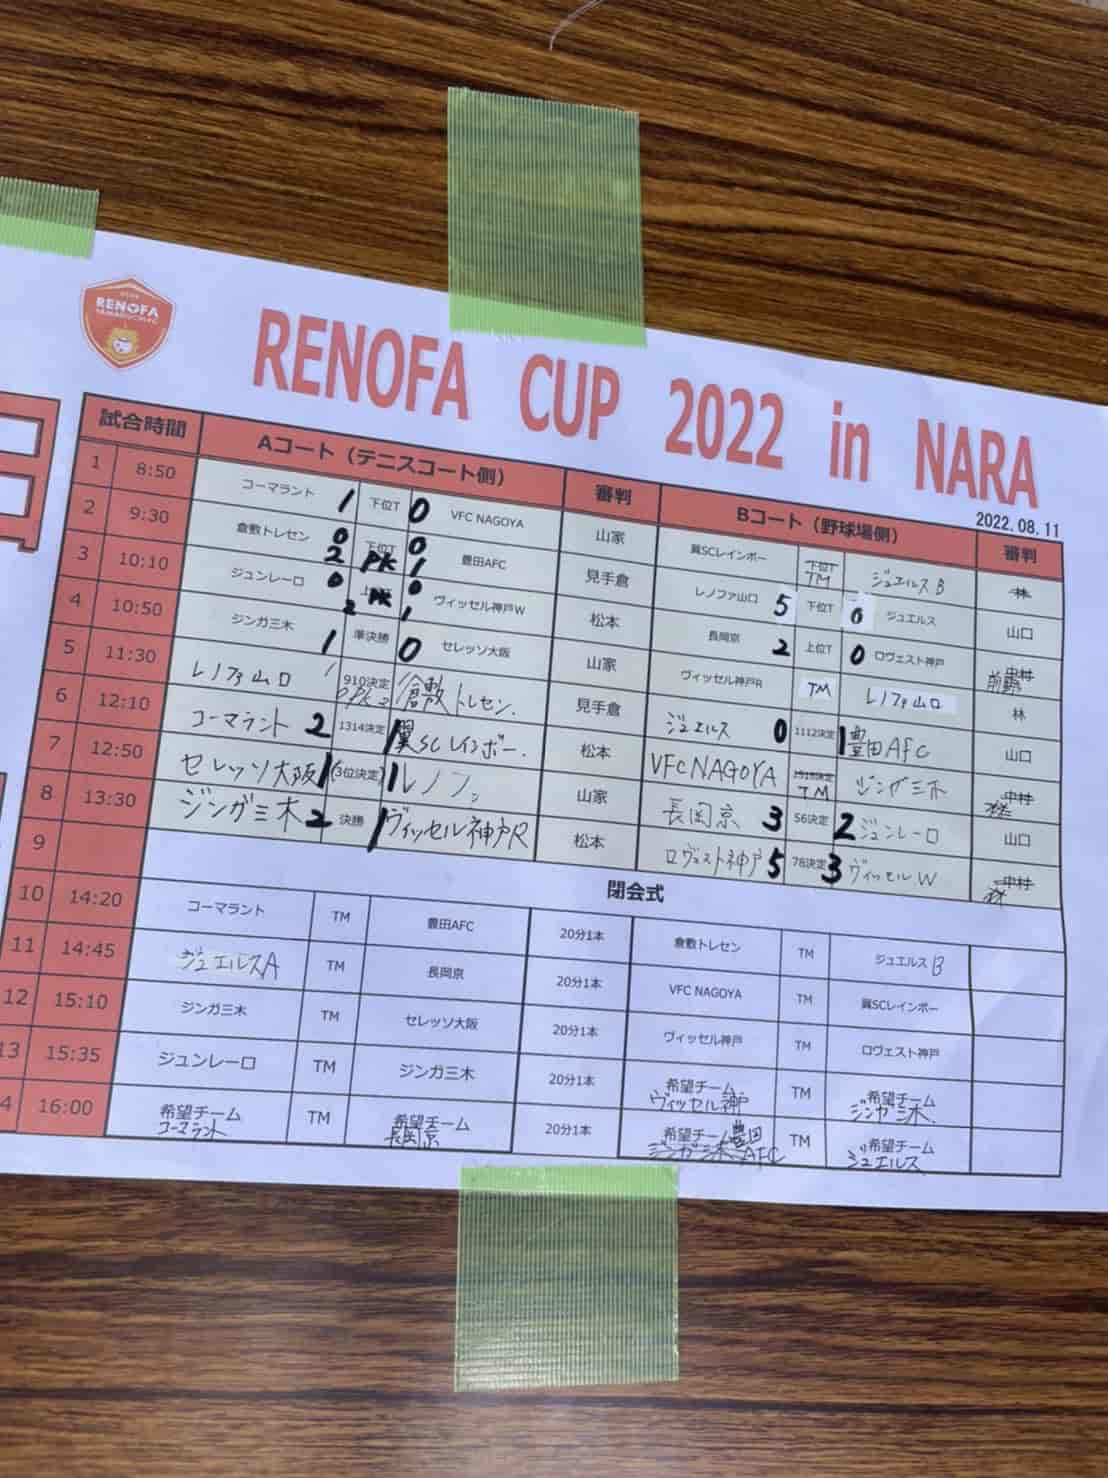 RENOFA
RENOFA CUP 2022 in NARA
2022.08.11
試合時間 Aコート（テニスコート側） 審判 Bコート（野球場側） 審判
1 8:50 コーマラント 1 下位T 0 VFC NAGOYA 山家 翼SCレインボー 下位T TM ジュエルスB 林
2 9:30 倉敷トレセン 0 2 下位T PK 0 1 豊田AFC 見手倉 レノファ山口 5 下位T 0 ジュエルス 山口
3 10:10 ジュンレーロ 0 2 PK 0 1 ヴィッセル神戸W 松本 長岡京 2 上位T 0 ロヴェスト神戸 中村
4 10:50 ジンガ三木 1 準決勝 0 セレッソ大阪 山家 ヴィッセル神戸R TM レノファ山口 林
5 11:30 レノファ山口 910決定 倉敷トレセン. 見手倉 ジュエルス 0 1112決定 1 豊田AFC 山口
6 12:10 コーマラント 2 1314決定 1 翼SCレインボー. 松本 VFC NAGOYA TM ジンガ三木 中村
7 12:50 セレッソ大阪 1 (3位決定) 1 レノファ 山家 長岡京 3 56決定 2 ジュンレーロ 山口
8 13:30 ジンガ三木 2 決勝 1 ヴィッセル神戸R 松本 ロヴェスト神戸 5 78決定 3 ヴィッセルW 中村
9 閉会式
10 14:20 コーマラント TM 豊田AFC 20分1本 倉敷トレセン TM ジュエルスB
11 14:45 ジュエルスA TM 長岡京 20分1本 VFC NAGOYA TM 翼SCレインボー
12 15:10 ジンガ三木 TM セレッソ大阪 20分1本 ヴィッセル神戸 TM ロヴェスト神戸
13 15:35 ジュンレーロ TM ジンガ三木 20分1本 希望チーム ヴィッセル神戸 TM 希望チーム ジンガ三木
4 16:00 希望チーム コーマラント TM 希望チーム 長岡京 20分1本 希望チーム ジンガ三木 豊田AFC TM 希望チーム ジュエルス